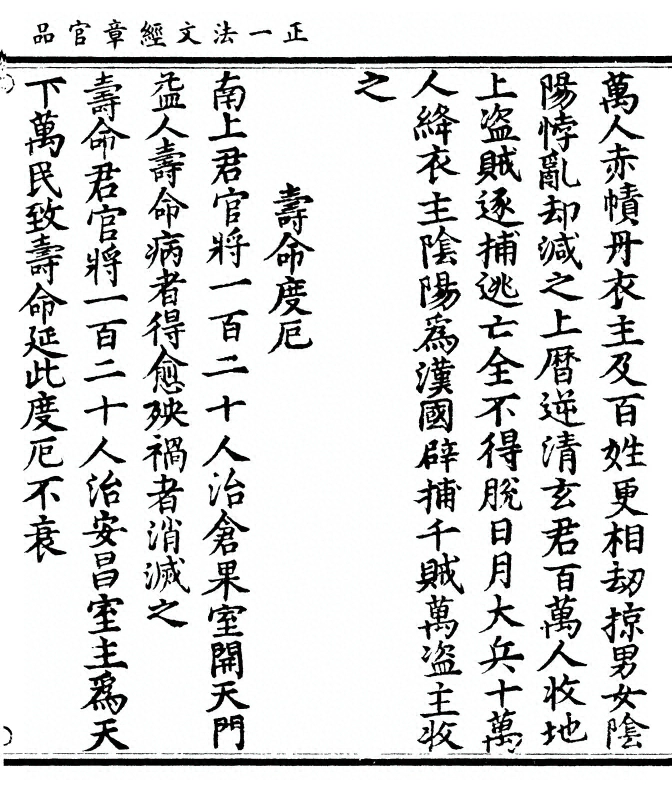 正一法文經章官品
萬人赤幘丹衣主及百姓更相劫掠男女陰
陽悖亂却減之上曆逆清玄君百萬人收地
上盜賊逐捕逃亡全不得脫日月大兵十萬
人絳衣主陰陽為漢國辟捕千賊萬盜主收
之
壽命度厄
南上君官將一百二十人治倉果室開天門
益人壽命病者得愈殃禍者消滅之
壽命君官將一百二十人治安昌室主為天
下萬民致壽命延此度厄不衰